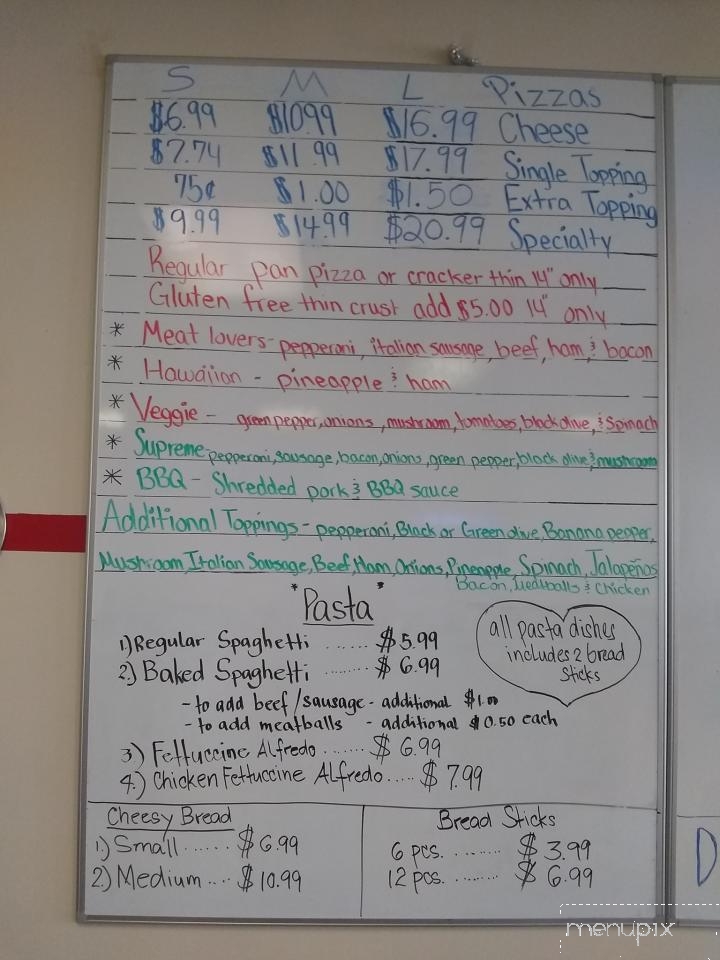 S M L Pizzas
$6.99 $10.99 $16.99 Cheese
$7.74 $11.99 $17.99 Single Topping
75¢ $1.00 $1.50 Extra Topping
$9.99 $14.99 $20.99 Specialty
Regular pan pizza or cracker thin 14" only
Gluten free thin crust add $5.00 14" only
* Meat lovers- pepperoni, italian sausage, beef, ham, & bacon
* Hawaiian - pineapple & ham
* Veggie - green pepper, onions, mushroom, tomatoes, black olive, & Spinach
* Supreme- pepperoni, sausage, bacon, onions, green pepper, black olive & mushroom
* BBQ - Shredded pork & BBQ sauce
Additional Toppings - pepperoni, Black or Green olive, Banana pepper,
Mushroom, Italian Sausage, Beef, Ham, Onions, Pineapple, Spinach, Jalapeños
Bacon, Meatballs & Chicken
"Pasta"
1) Regular Spaghetti ...... $5.99
2.) Baked Spaghetti ........ $6.99
- to add beef/sausage - additional $1.00
- to add meatballs - additional $0.50 each
3) Fettuccine Alfredo ....... $6.99
4.) Chicken Fettuccine Alfredo..... $7.99
all pasta dishes
includes 2 bread
sticks
Cheesy Bread
1) Small ...... $6.99
2) Medium .... $10.99
Bread Sticks
6 pcs. ......... $3.99
12 pcs. ......... $6.99
D
menupix